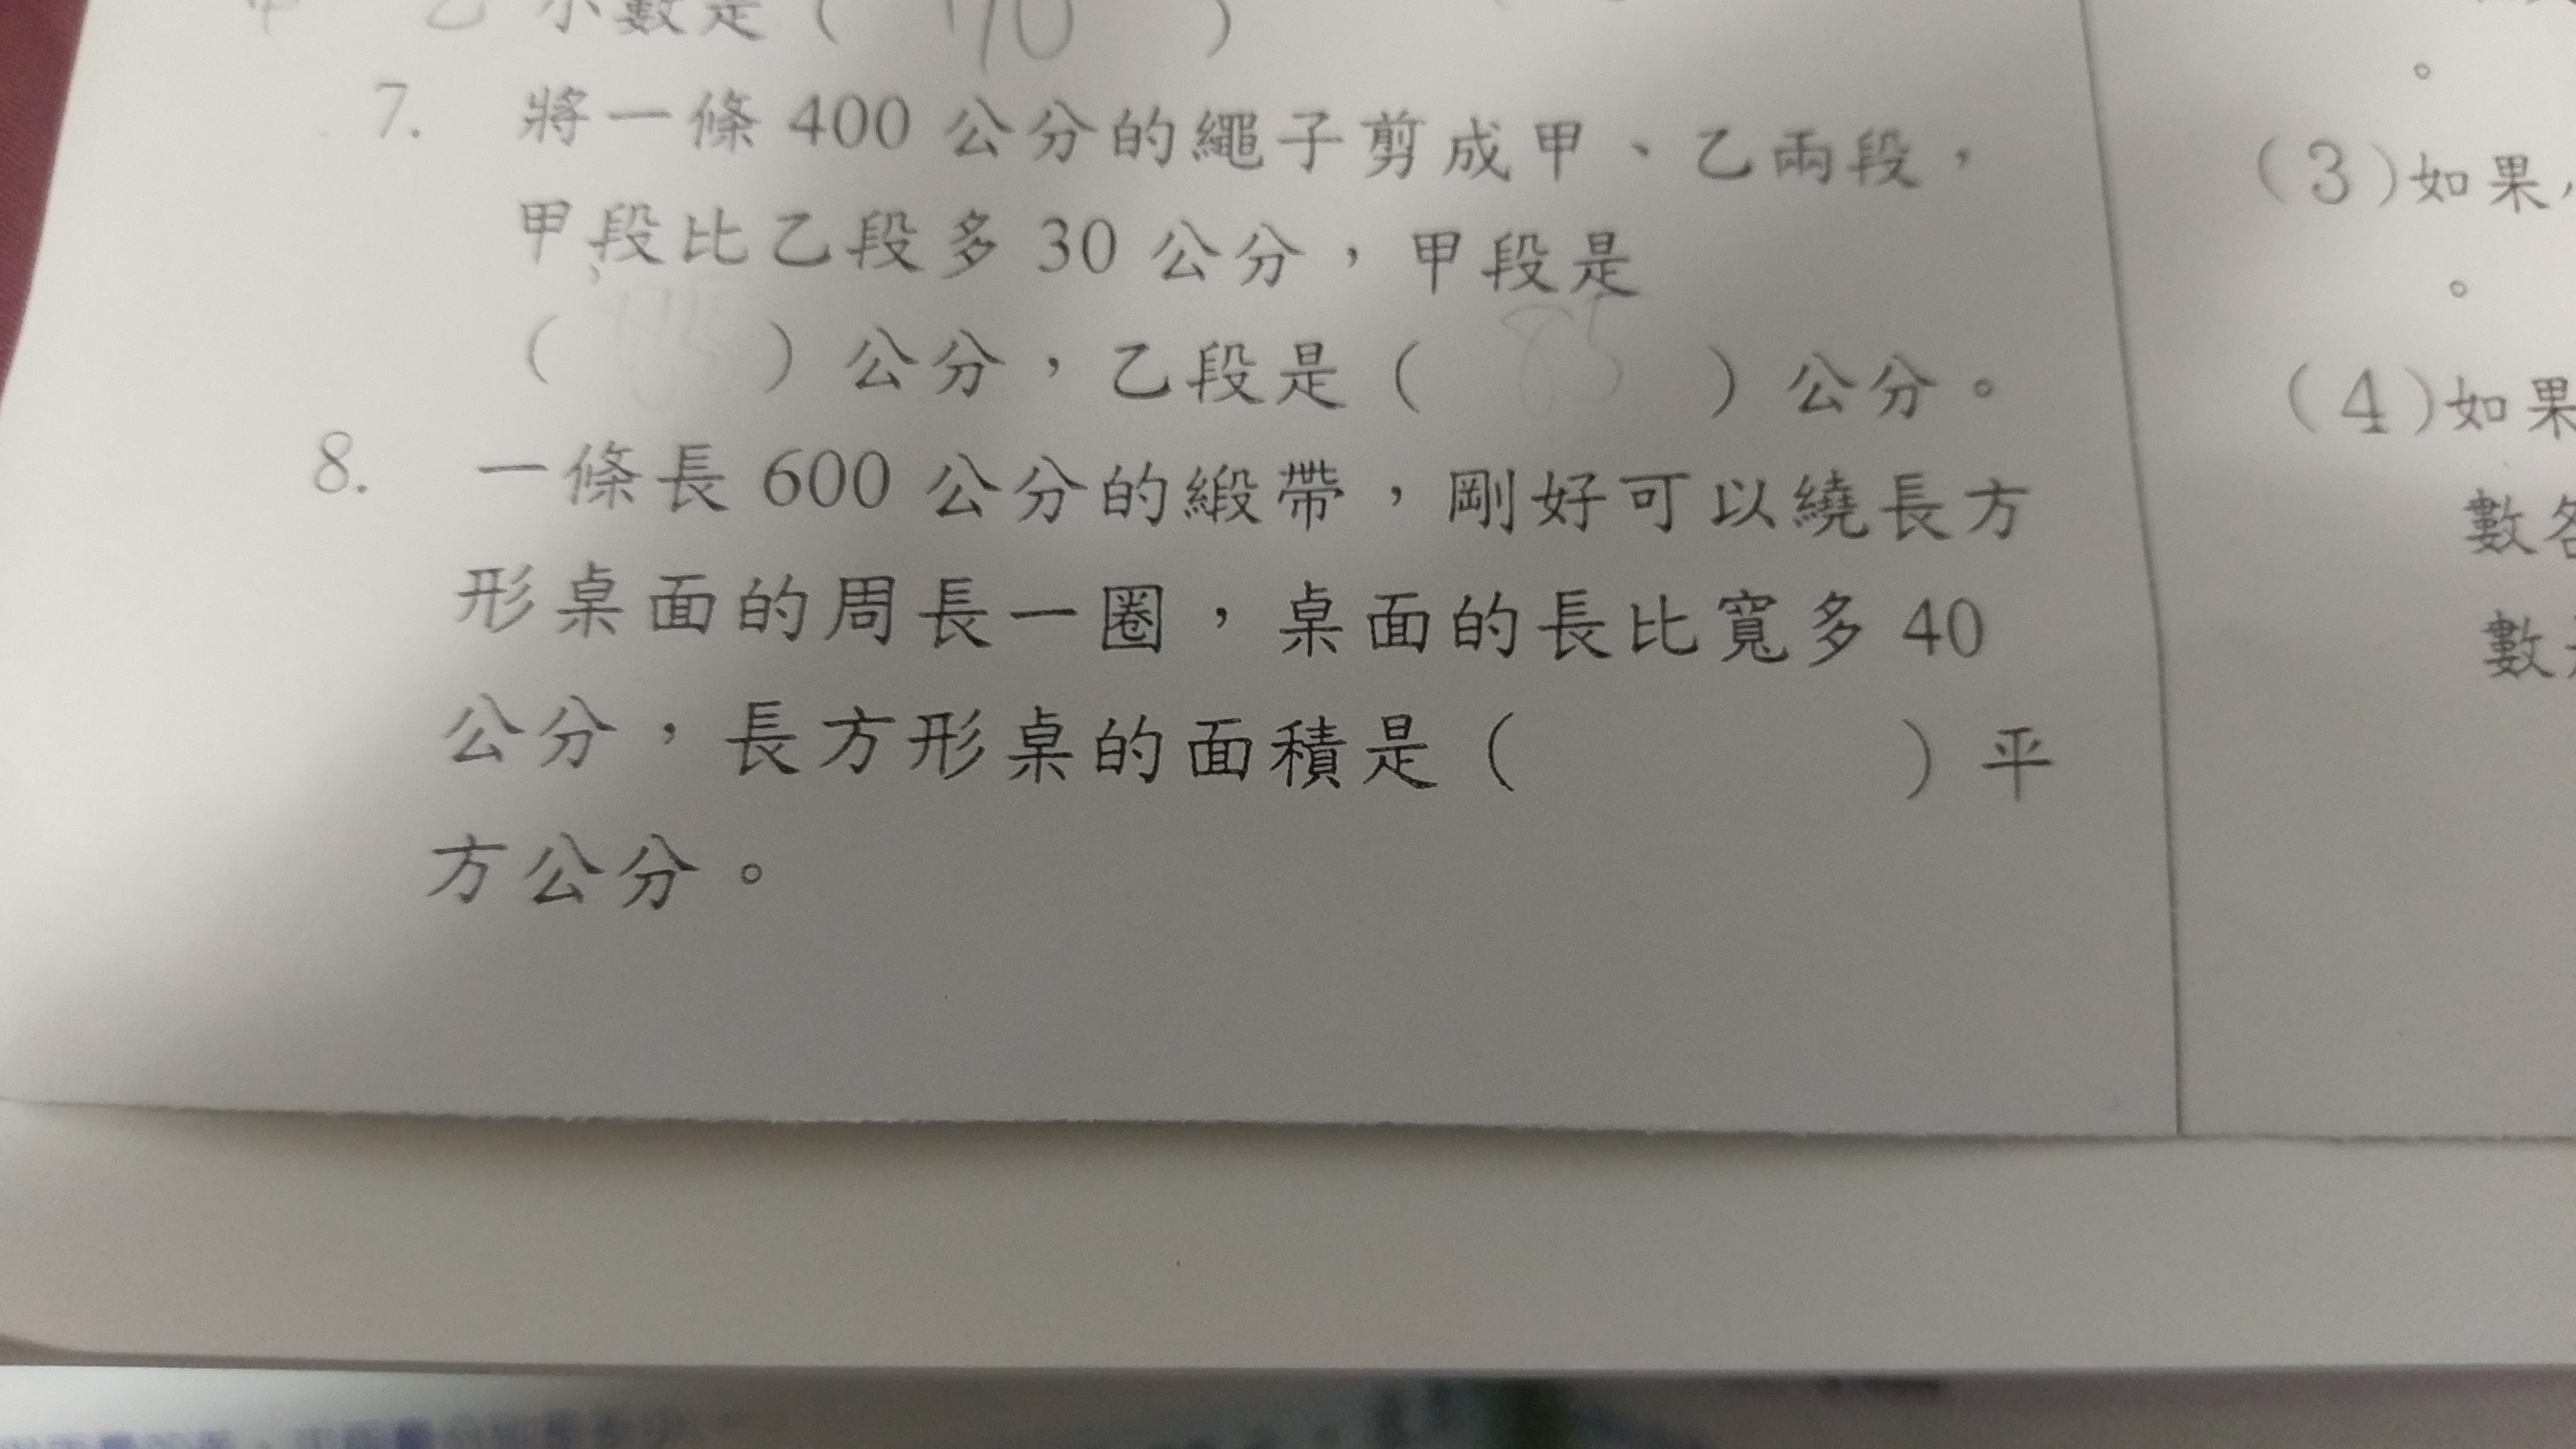 乙 小數是( 170 )
7. 將一條 400 公分的繩子剪成甲、乙兩段，
甲段比乙段多 30 公分，甲段是
( ) 公分，乙段是( 85 ) 公分。
8. 一條長 600 公分的緞帶，剛好可以繞長方
形桌面的周長一圈，桌面的長比寬多 40
公分，長方形桌的面積是( ) 平
方公分。
。
(3)如果
。
(4)如果
數
數